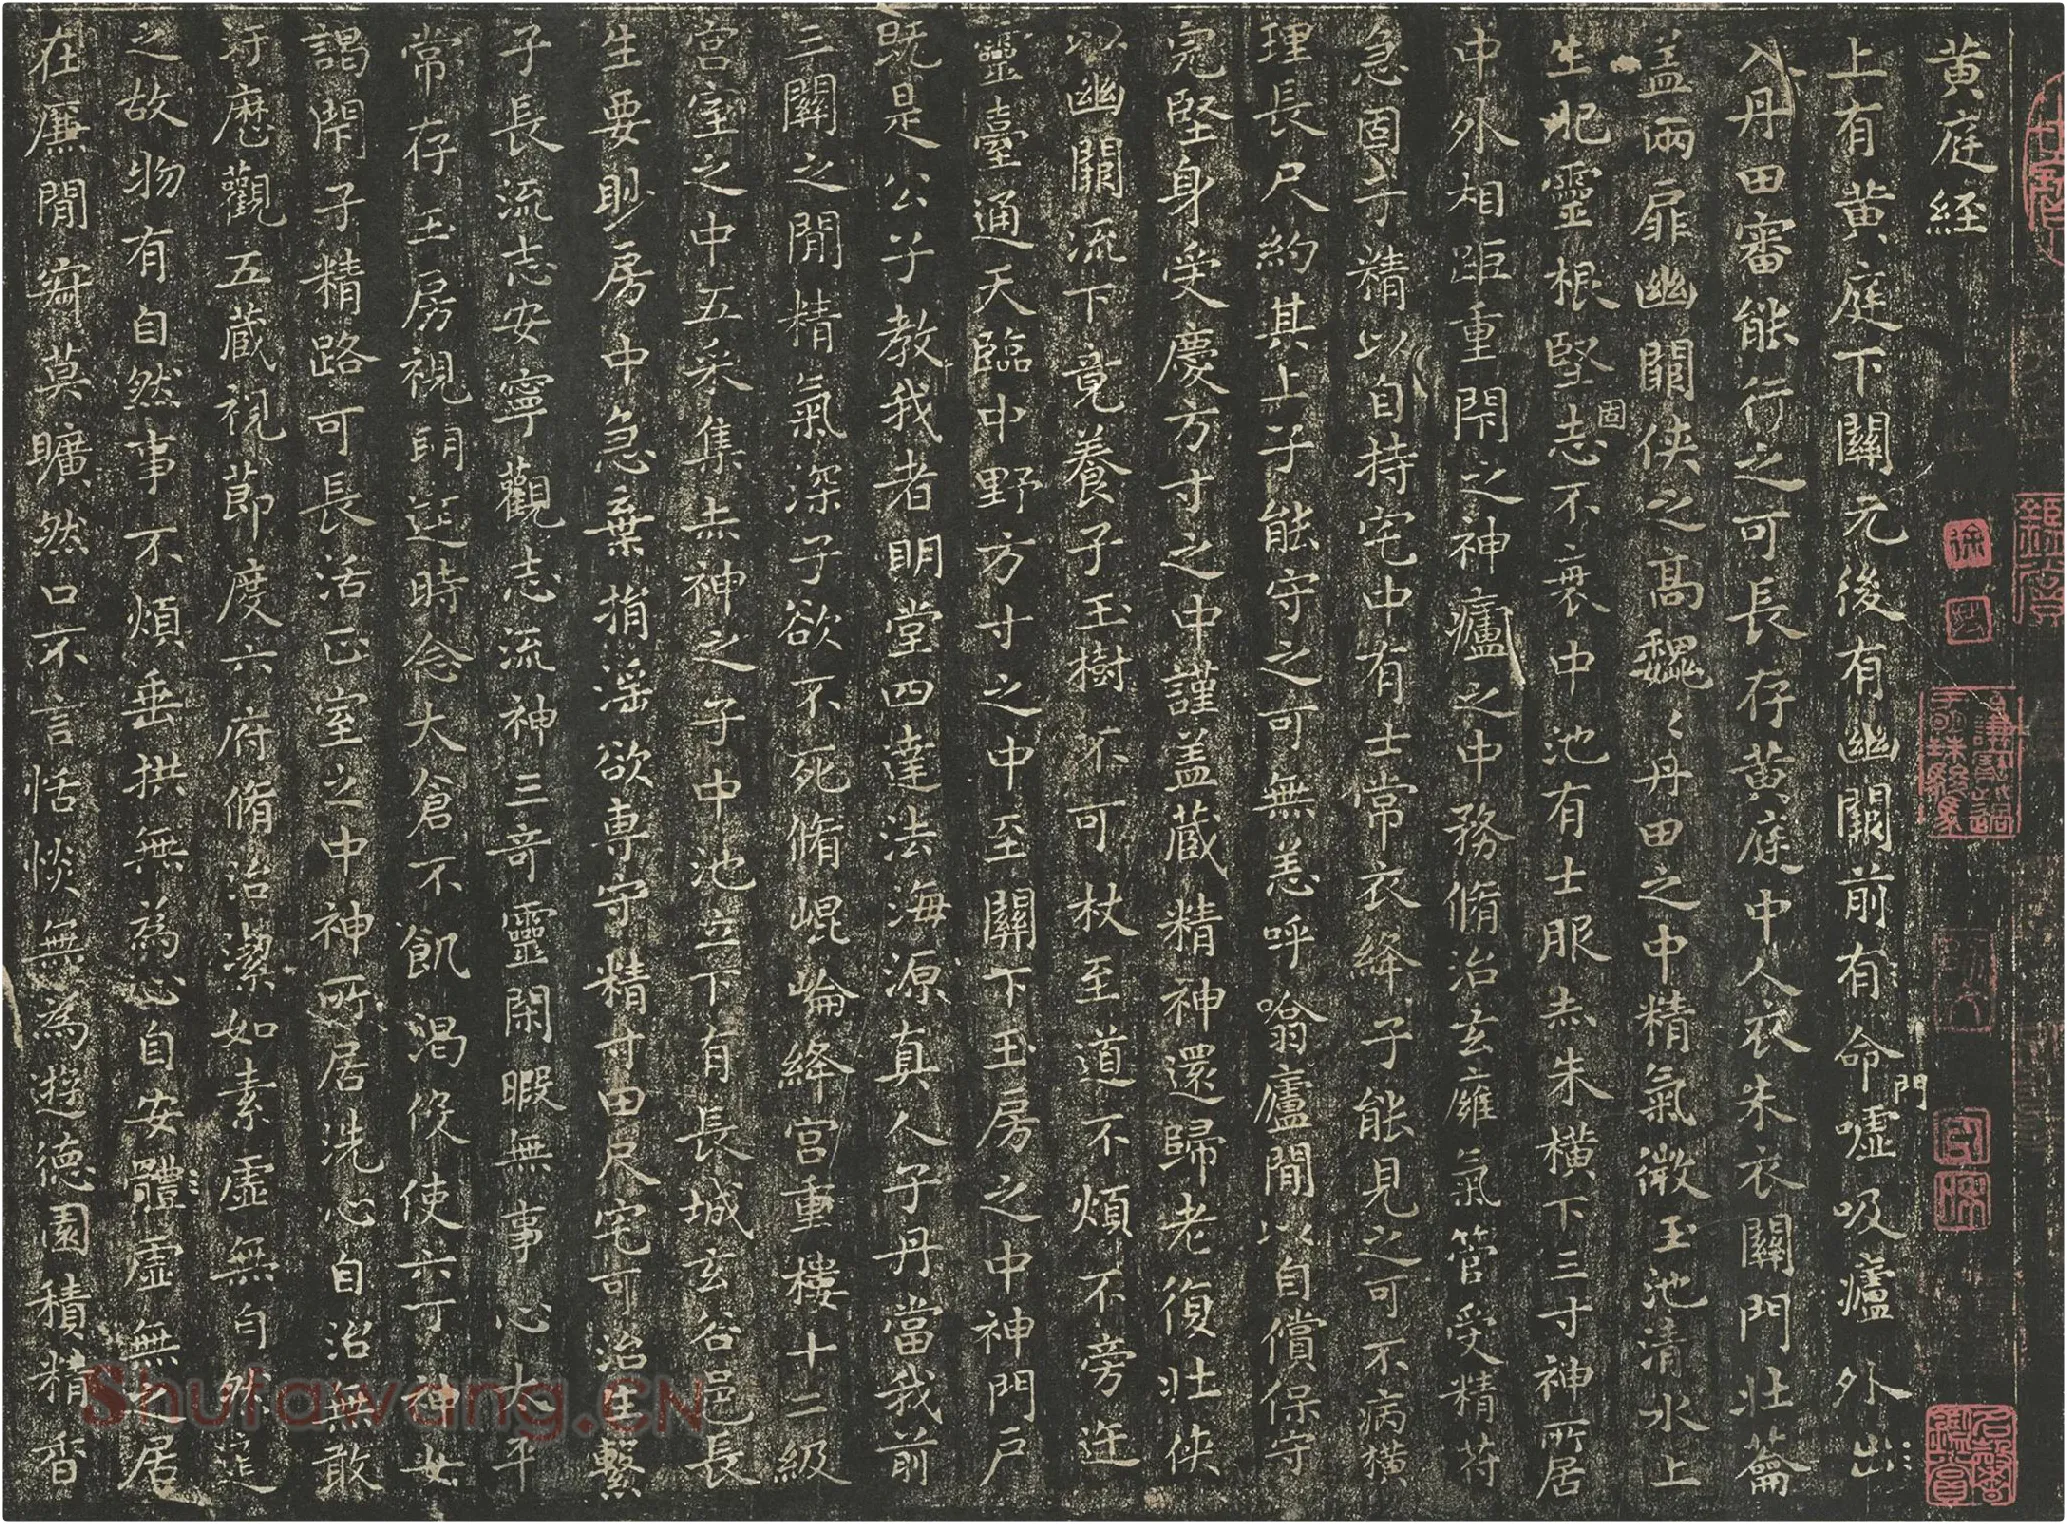 黃庭經
上有黃庭下關元後有幽關前有命門噓吸廬外出
入丹田審能行之可長存黃庭中人衣朱衣關門壯籥
盖兩扉幽關俠之高魏〻丹田之中精氣微玉池清水上
生肥靈根堅固志不衰中池有士服赤朱橫下三寸神所居
中外相距重閇之神廬之中務脩治玄廱氣管受精符
急固子精以自持宅中有士常衣絳子能見之可不病橫
理長尺約其上子能守之可無恙呼噏廬閒以自償保守
完堅身受慶方寸之中謹盖蔵精神還歸老復壯俠
以幽關流下竟養子玉樹不可杖至道不煩不旁迕
靈臺通天臨中野方寸之中至關下玉房之中神門戶
既是公子教我者明堂四達法海源真人子丹當我前
三關之閒精氣深子欲不死脩崐崘絳宮重樓十二級
宮室之中五采集赤神之子中池立下有長城玄谷邑長
生要眇房中急棄捐淫欲専守精寸田尺宅可治生繫
子長流志安寧觀志流神三奇靈閑暇無事心太平
常存玉房視明達時念大倉不飢渴役使六丁神女
謁閇子精路可長活正室之中神所居洗心自治無敢
汙歷觀五蔵視節度六府脩治潔如素虛無自然道
之故物有自然事不煩垂拱無為心自安體虛無之居
在廉閒寂莫曠然口不言恬惔無為遊德園積精香
Shufawang.CN